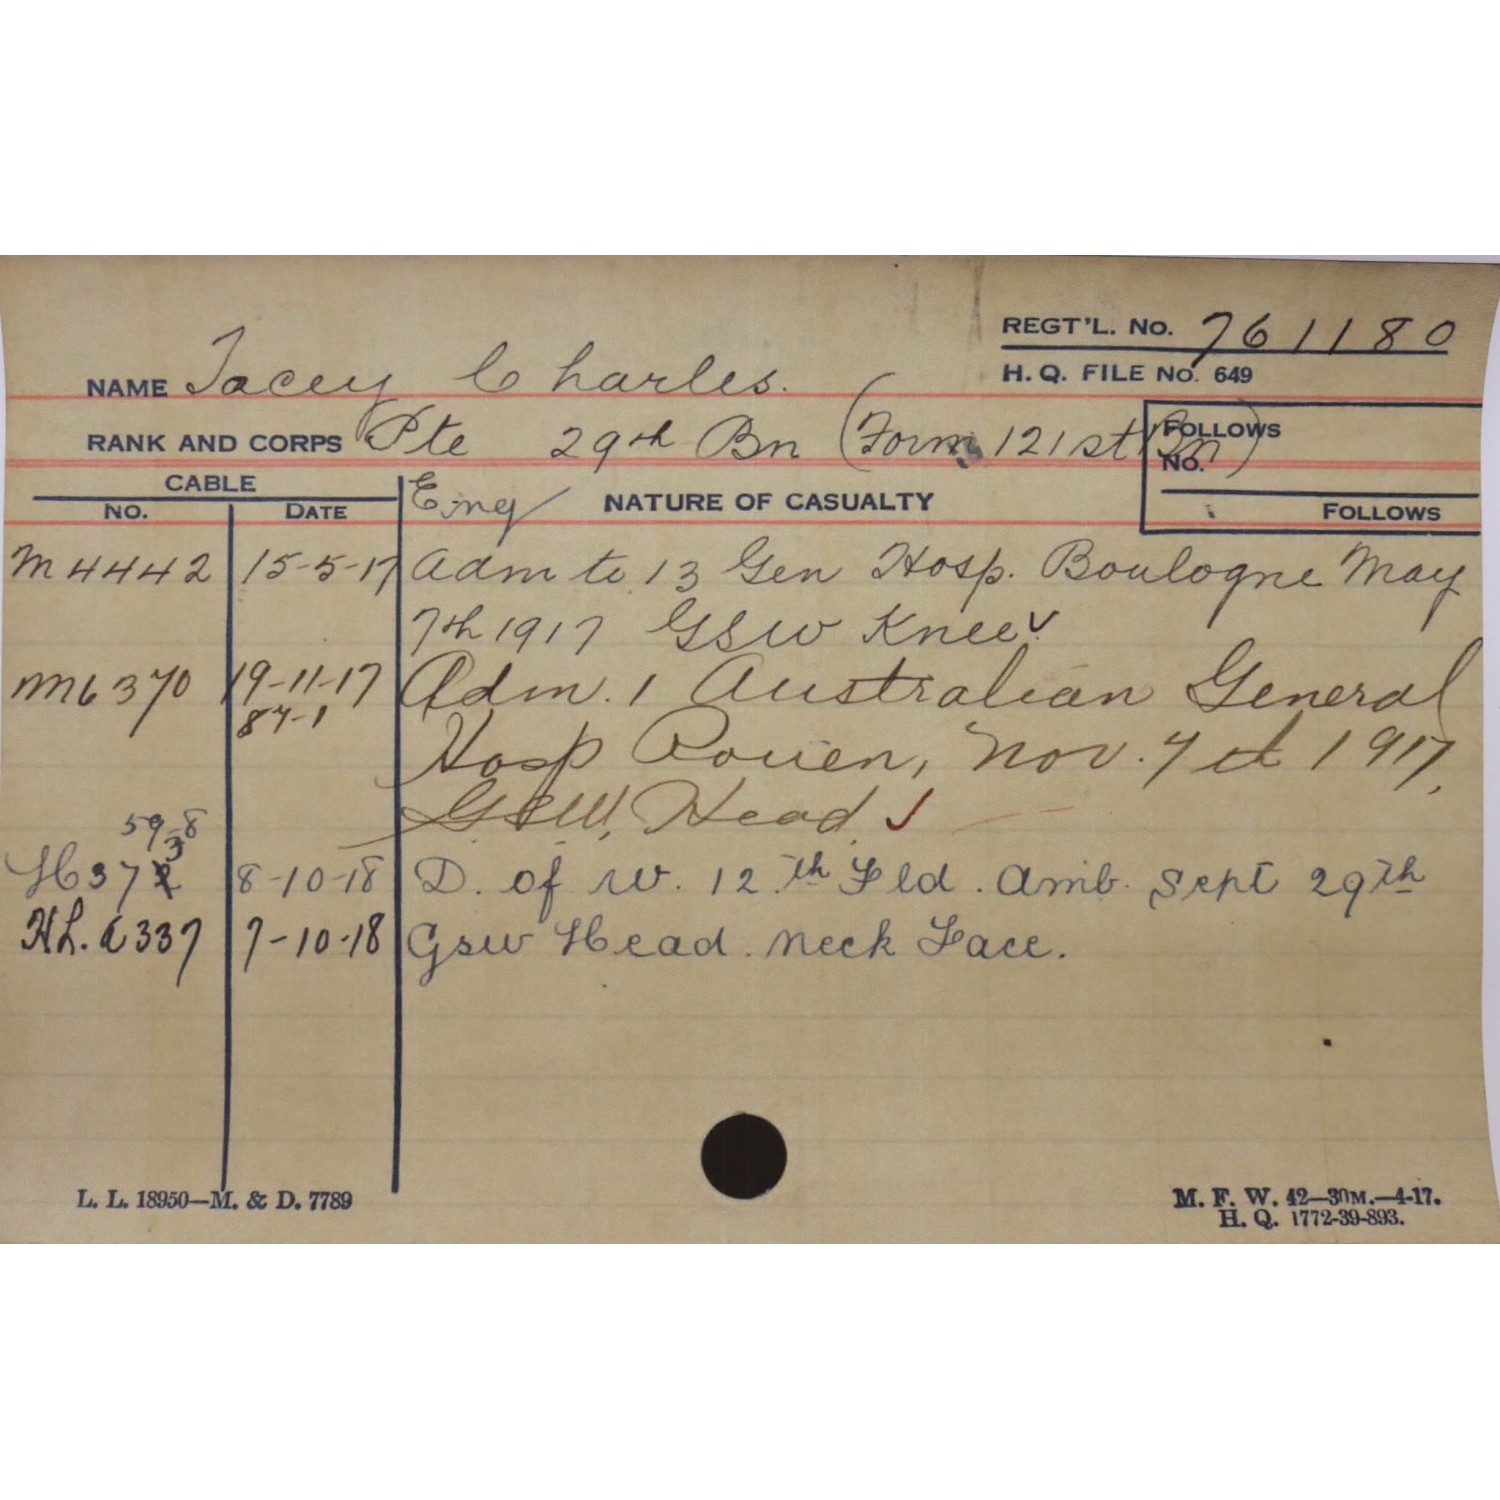 REGT'L. NO. 761180
NAME Tacey Charles.
H. Q. FILE NO. 649
RANK AND CORPS Pte 29th Bn (Form 121st Bn)
FOLLOWS
NO.
CABLE
Eng
NATURE OF CASUALTY
NO. DATE
FOLLOWS
M4442 15-5-17 Adm to 13 Gen Hosp. Boulogne May
7th 1917 GSW Knee
M6370 19-11-17 Adm. 1 Australian General
87-1
Hosp Rouen, Nov. 7th 1917,
GSW, Head
59-8
3
H372 8-10-18 D. of W. 12.th Fld. Amb. Sept 29th
HL. a337 7-10-18 Gsw Head. neck Face.
L. L. 18950—M. & D. 7789
M. F. W. 42—30M.—4-17.
H. Q. 1772-39-893.